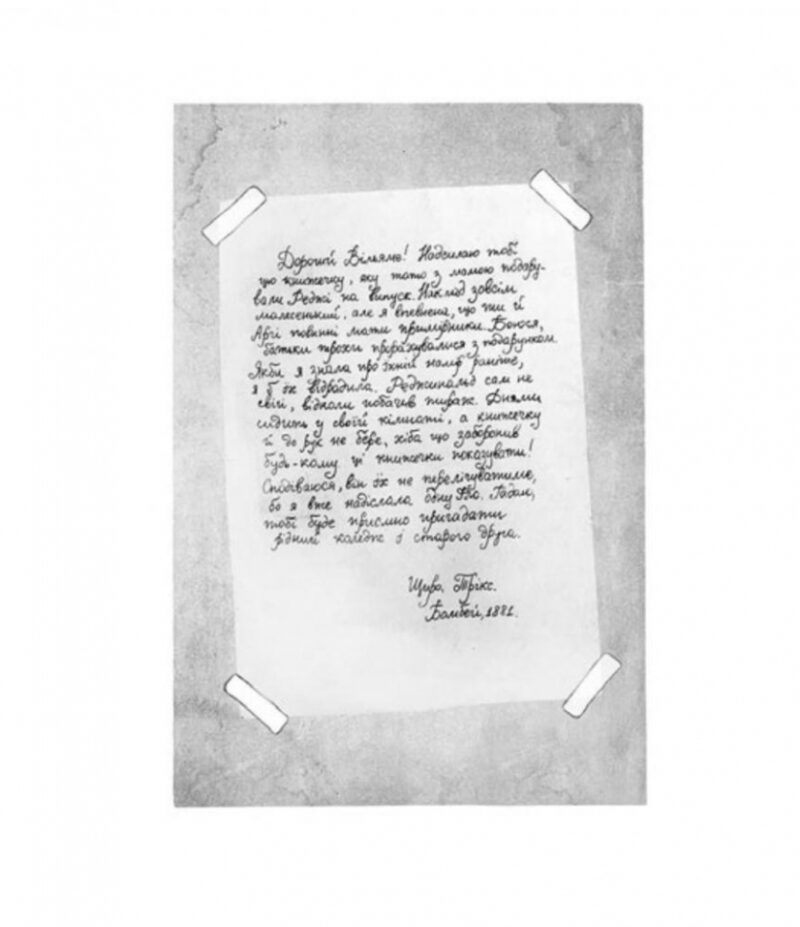 Дорогий Вільяме! Надсилаю тобі
цю книжечку, яку тато з мамою подару-
вали Реджі на випуск. Наклад зовсім
малесенький, але я впевнена, що ти й
Арчі повинні мати примірники. Боюся,
батьки трохи прорахувалися з подарунком.
Якби я знала про їхній намір раніше,
я б їх відрадила. Реджинальд сам не
свій, відколи побачив тираж. Днями
сидить у своїй кімнаті, а книжечку
й до рук не бере, хіба що заборонив
будь-кому ці книжечки показувати!
Сподіваюся, він їх не перелічуватиме,
бо я вже надіслала одну Фло. Гадаю,
тобі буде приємно пригадати
рідний каледж і старого друга.
Щиро, Трікс.
Бомбей, 1881.